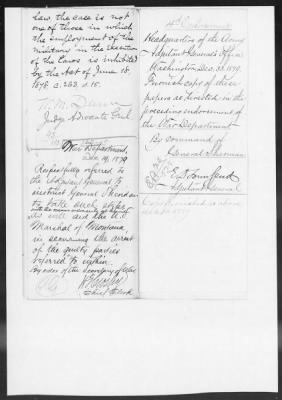 law, the case is not
one of those in which
the employment of the
military in the execution
of the laws is inhibited
by the Act of June 18,
1878. c. 263. s. 15.
W. M. Dunn
Judge Advocate Genl.
War Department,
Dec 19, 1879
Respectfully referred to
the Adjutant General to
instruct General Sheridan
to take such steps
as will aid the U.S.
Marshal of Montana,
in securing the arrest
of the guilty parties
referred to within.
By order of the Secretary of War
Chief Clerk
4th Endorsement
Headquarters of the Army
Adjutant General's Office
Washington Dec. 22, 1879.
Furnish copy of these
papers as directed in the
preceding endorsement of
the War Department
By command of
General Sherman
E. D. Townsend
Adjutant General
Copy furnished as above